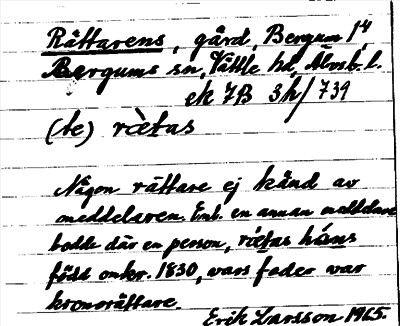 Rättarens, gård, Bergum 1⁴,
Bergums sn, Vättle hd, Älvsb. l.
ek 7B 3h/739
(te) rɩ̀etas
Någon rättare ej känd av
meddelaren. Enl. en annan meddelare
bodde där en person, rɩetas
född omkr. 1830, vars fader var
kronorättare.
Erik Larsson 1965.